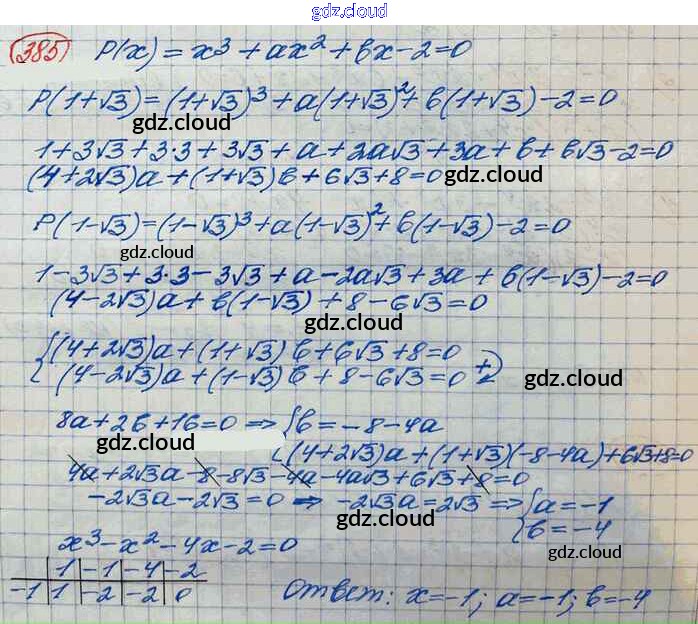 gdz.cloud
385 P(x) = x³ + ax² + bx - 2 = 0
P(1+√3) = (1+√3)³ + a(1+√3)² + b(1+√3) - 2 = 0
gdz.cloud
1 + 3√3 + 3·3 + 3√3 + a + 2a√3 + 3a + b + b√3 - 2 = 0
(4+2√3)a + (1+√3)b + 6√3 + 8 = 0 gdz.cloud
P(1-√3) = (1-√3)³ + a(1-√3)² + b(1-√3) - 2 = 0
gdz.cloud
1 - 3√3 + 3·3 - 3√3 + a - 2a√3 + 3a + b(1-√3) - 2 = 0
(4-2√3)a + b(1-√3) + 8 - 6√3 = 0
gdz.cloud
{ (4+2√3)a + (1+√3)b + 6√3 + 8 = 0
(4-2√3)a + (1-√3)b + 8 - 6√3 = 0 +
gdz.cloud
8a + 2b + 16 = 0 ⇒ { b = -8 - 4a
gdz.cloud
(4+2√3)a + (1+√3)(-8-4a) + 6√3 + 8 = 0
4a + 2√3a - 8 - 8√3 - 4a - 4a√3 + 6√3 + 8 = 0
-2√3a - 2√3 = 0 ⇒ -2√3a = 2√3 ⇒ { a = -1
b = -4
x³ - x² - 4x - 2 = 0
gdz.cloud
1 -1 -4 -2
-1 1 -2 -2 0
Ответ: x = -1; a = -1; b = -4
gdz.cloud